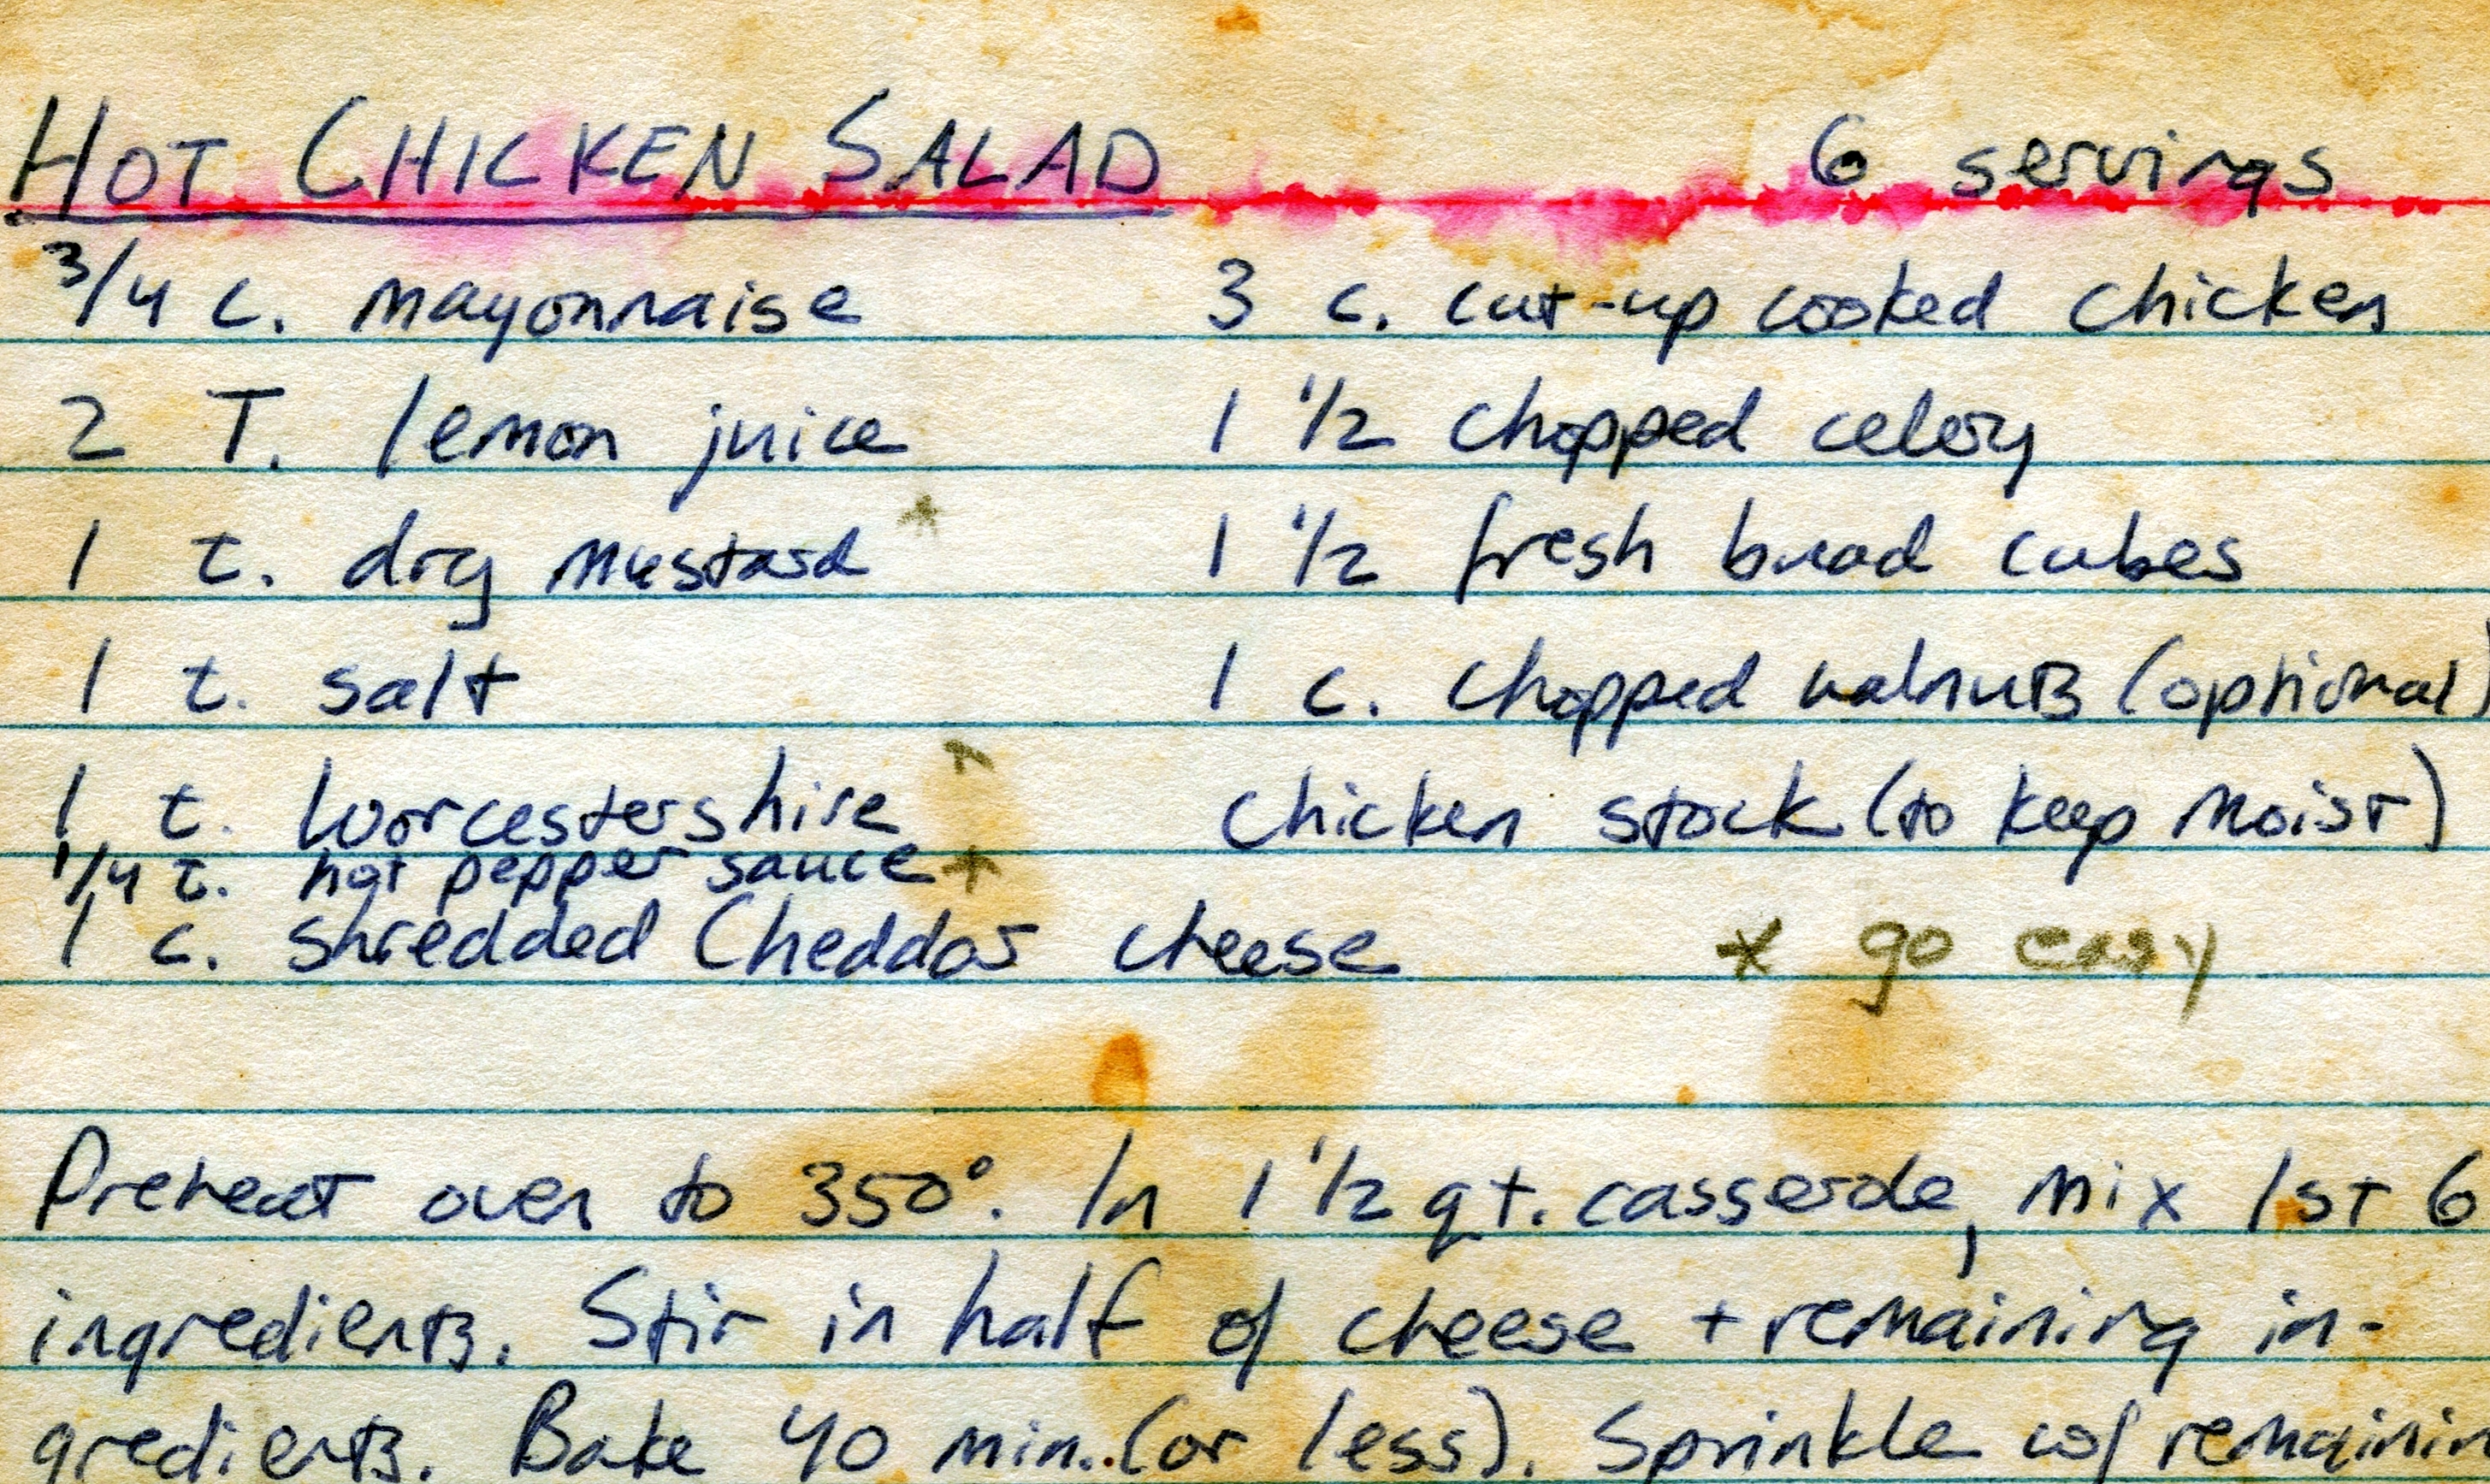 HOT CHICKEN SALAD 6 servings
3/4 c. mayonnaise 3 c. cut-up cooked chicken
2 T. lemon juice 1 1/2 chopped celery
1 t. dry mustard * 1 1/2 fresh bread cubes
1 t. salt 1 c. chopped walnuts (optional)
1 t. Worcestershire * chicken stock (to keep moist)
1/4 t. hot pepper sauce *
1 c. shredded Cheddar cheese * go easy
Preheat oven to 350°. In 1 1/2 qt. casserole, mix 1st 6
ingredients. Stir in half of cheese + remaining in-
gredients. Bake 40 min. (or less). Sprinkle w/ remainin